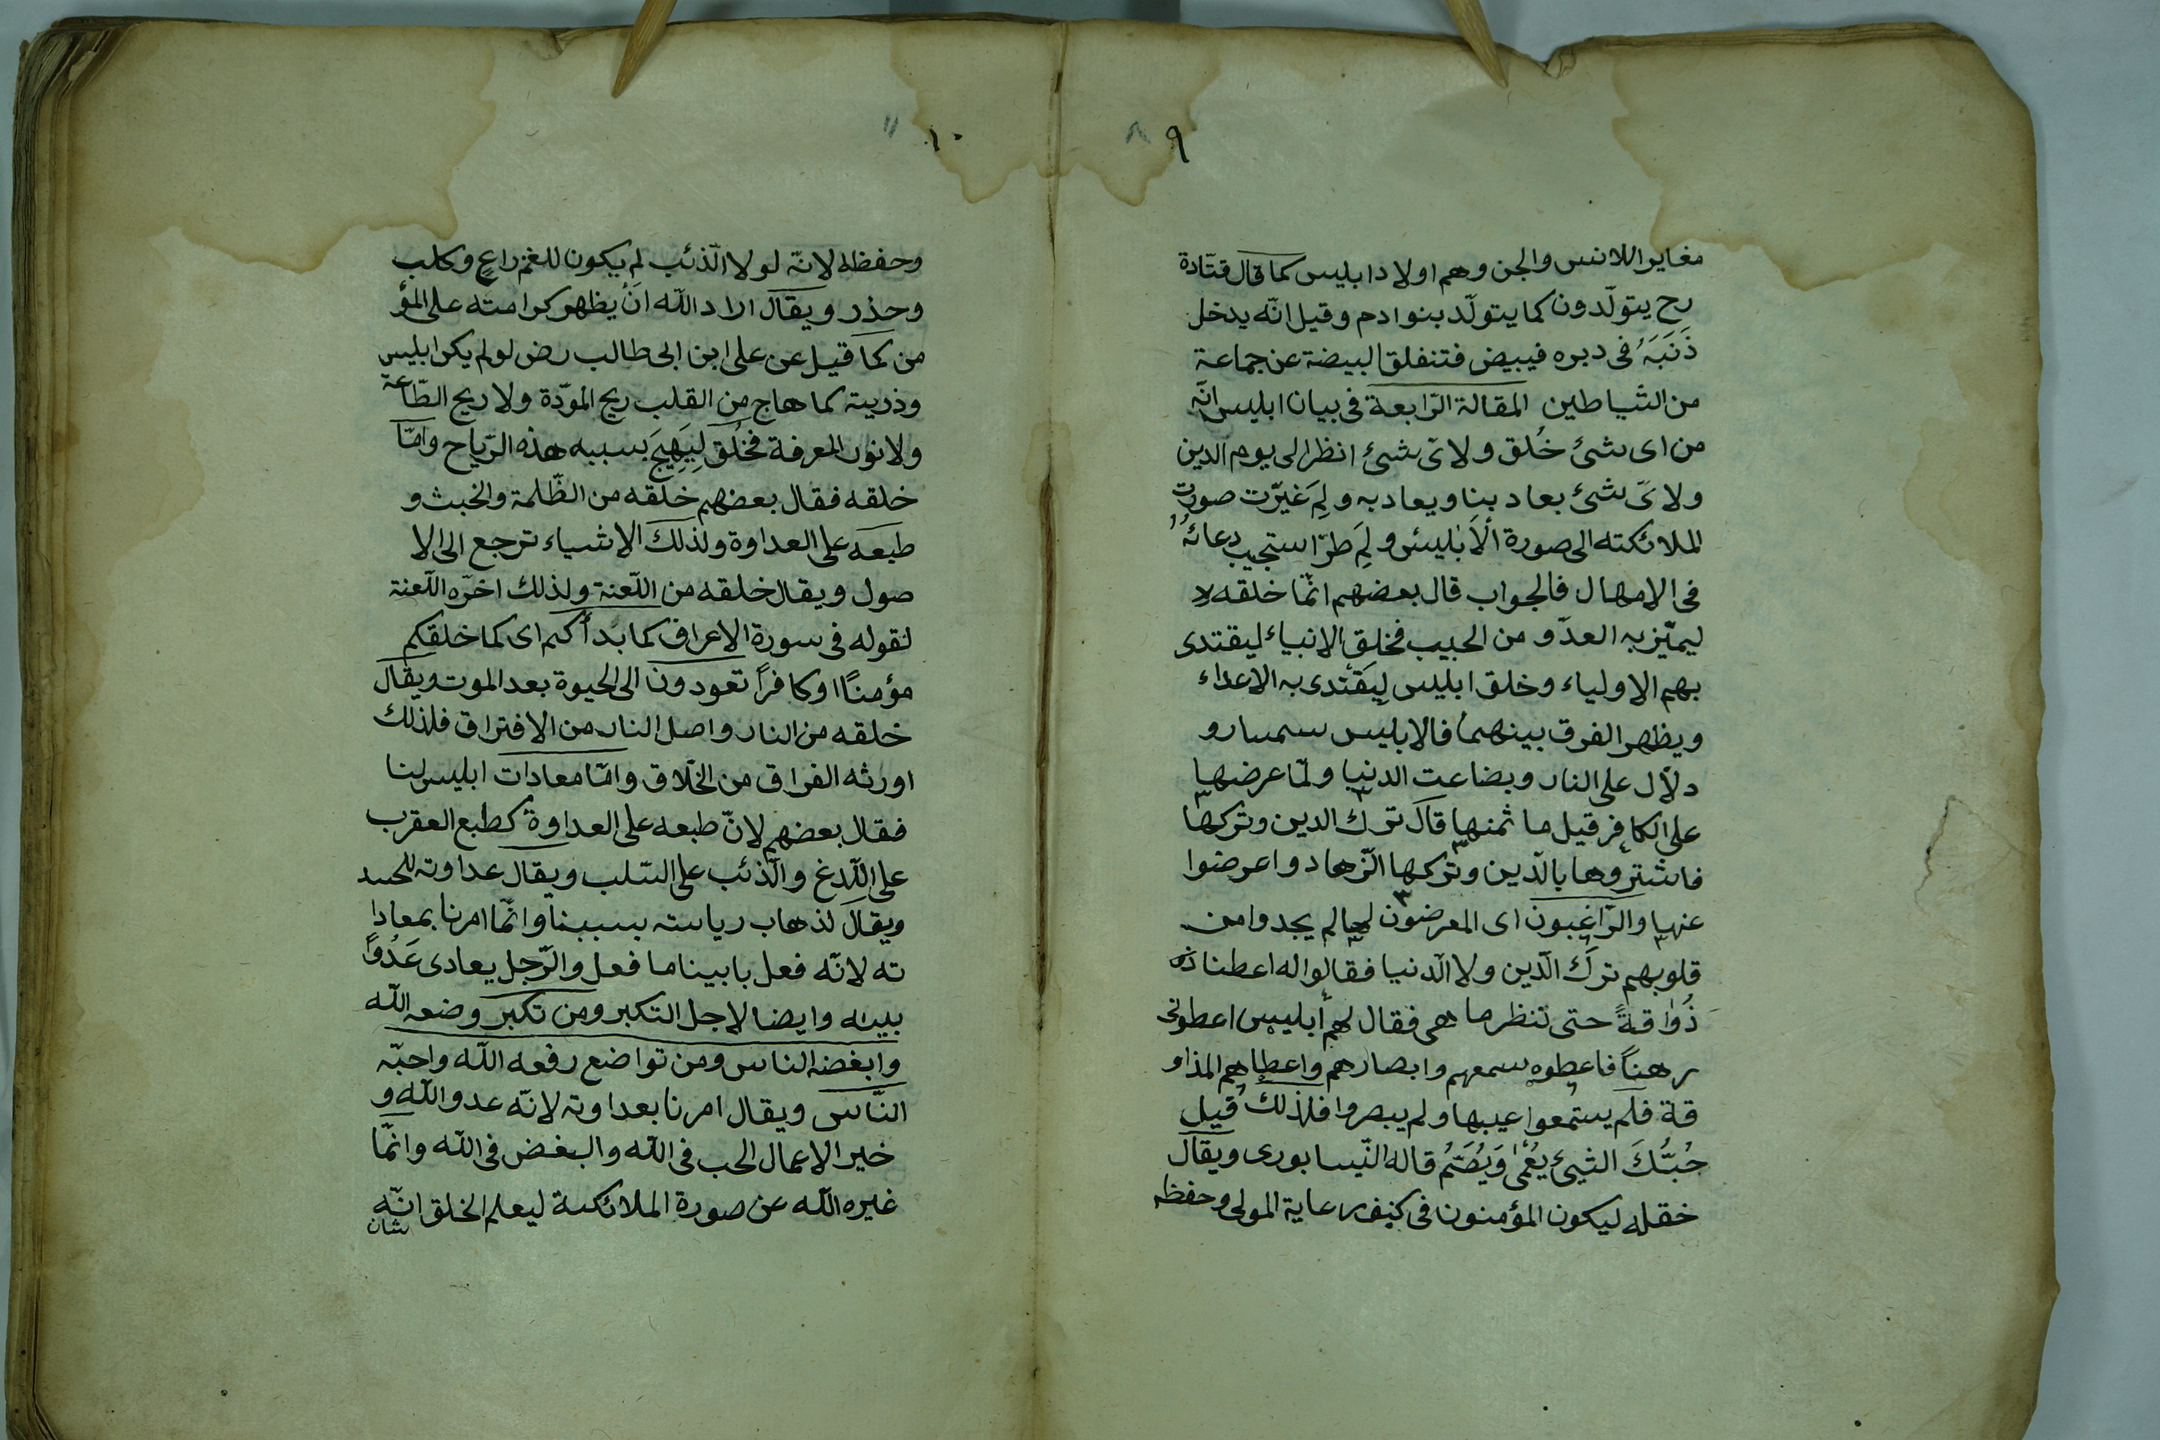 ٨ ٩
مغاير اللانس والجن وهم اولاد ابليس كما قال قتادة
رح يتولدون كما يتولد بنوا ادم وقيل انه يدخل
ذَنَبَهُ فى دبره فيبيض فتنفلق البيضة عن جماعة
من الشياطين المقالة الرابعة فى بيان ابليس انه
من اى شئ خُلق ولاىّ شئ انظر الى يوم الدين
ولاىّ شئ يعاد بنا ويعاد به ولِمَ غيّرت صورت
الملائكته الى صورة ألاَبٰليس ولِمَ طرّا ستجيب دعائهُ
فى الامهال فالجواب قال بعضهم انّما خلقه لا
ليميّز به العدّو من الحبيب فخلق الانبياء ليقتدى
بهم الاولياء وخلق ابليس لِيَقْتدى به الاعداء
ويظهر الفرق بينهما فالابليس سمسار و
دلّال على النار وبضاعت الدنيا ولمّا عرضها
على الكافر قيل ما ثمنها قال ترك الدين وتركها
فاشتروها بالدّين وتركها الزّهاد واعرضوا
عنها والرّاغبون اى المعرضون لها لم يجدوا من
قلوبهم تركَ الدّين ولا الدنيا فقالوا له اعطنا ذه
ذُوٰاقةً حتى تنظر ما هى فقال لهم أبليس اعطونى
رهناً فاعطوه سمعهم وابصارهم واعطاهم المذاو
قة فلم يستمعوا عيبها ولم يبصروا فلذلك قيل
حُبُّكَ الشيئ يُعْمىٰ وَيُصَّمُ قاله النّيسابورى ويقال
خقله ليكون المؤمنون فى كنف رعاية المولى وحفظه
١٠ ١١
وحفظه لانّه لولا الذّئب لم يكون للغنم راعٍ وكلب
وحذر ويقال اراد اللّه انْ يظهر كرامته على المؤ
من كما قيل عن على ابن ابى طالب رض لو لم يكن ابليس
وذريته كما هاج من القلب ريح المودّة ولا ريح الطّاعة
ولا نور المعرفة فخُلق لِيَهِيجَ بسببه هذه الرّياح وامّا
خلقه فقال بعضهم خلقه من الظّلمة والخبث و
طبعه على العداوة ولذلك الاشياء ترجع الى الا
صول ويقال خلقه من اللّعنة ولذلك اخرّه اللّعنة
لقوله فى سورة الاعراف كما بدأكم اى كما خلقكم
مؤمنًا اوكافراً تعودون الى الحيوة بعد الموت ويقال
خلقه من النار واصل النار من الافتراق فلذلك
اورثه الفراق من الخلّاق وامّا معادات ابليس لنا
فقال بعضهم لانّ طبعه على العداوة كطبع العقرب
على اللّدغ والذّئب على السّلب ويقال عداوته للحسد
ويقال لذهاب رياسته بسببنا وانّما امرنا بمعادا
ته لانّه فعل بابينا ما فعل والرّجل يعادى عَدُوّاً
بينه وايضا لاجل التكبر ومن تكبر وضعه اللّه
وابغضه الناس ومن تواضع رفعه اللّه واحبّه
النّاس ويقال امرنا بعداوته لانّه عدو اللّه و
خير الاعمال الحب فى اللّه والبغض فى اللّه وانّما
غيره اللّه عن صورة الملائكة ليعلم الخلق انّه
شان